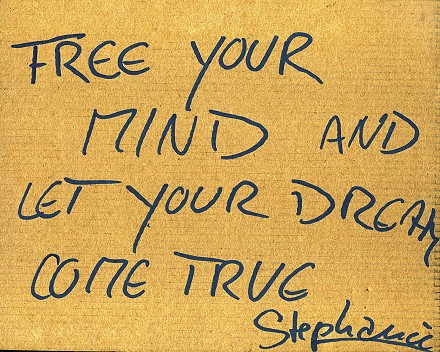 FREE YOUR
MIND AND
LET YOUR DREAM
COME TRUE
Stephanie